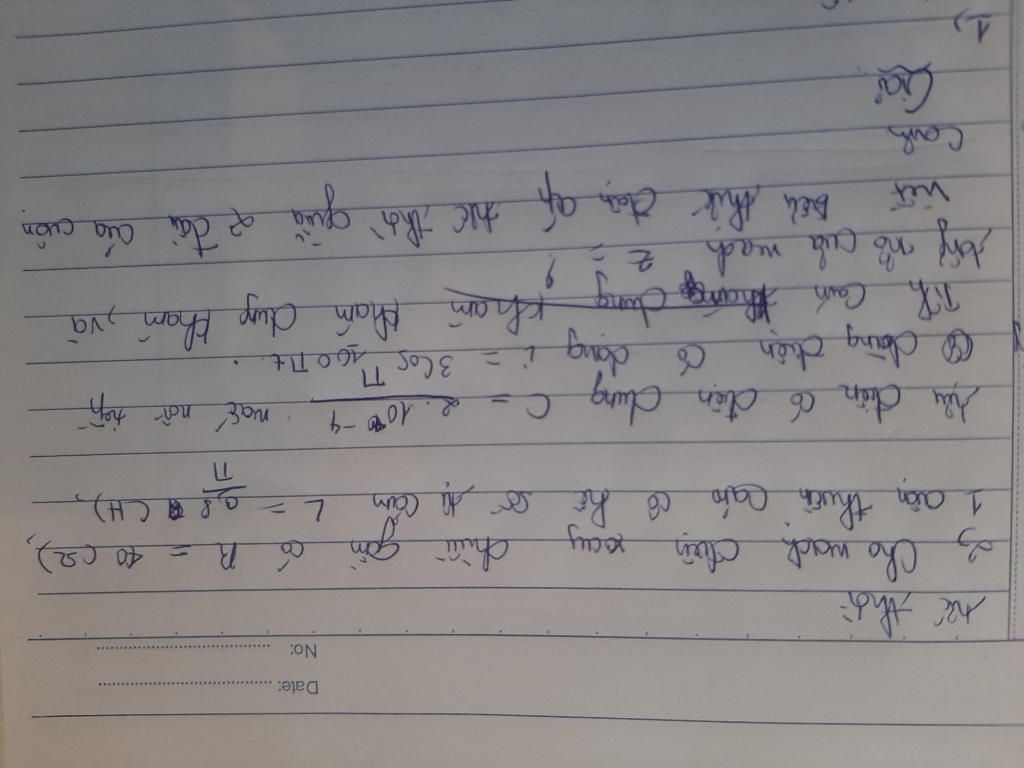 Date:
No:
tức thời
2) Cho mạch điện xoay chiều gồm có R = 40 (Ω),
1 cuộn thuần cảm có hệ số tự cảm L = 0,8/π (H),
tụ điện có điện dung C = 2.10^-4/π mắc nối tiếp
dòng điện có dạng i = 3cos 100πt.
Tính cảm kháng dung kháng, và
tổng trở của mạch Z = ?
viết biểu thức điện áp tức thời giữa 2 đầu của cuộn
Cảm
Giải
1,)